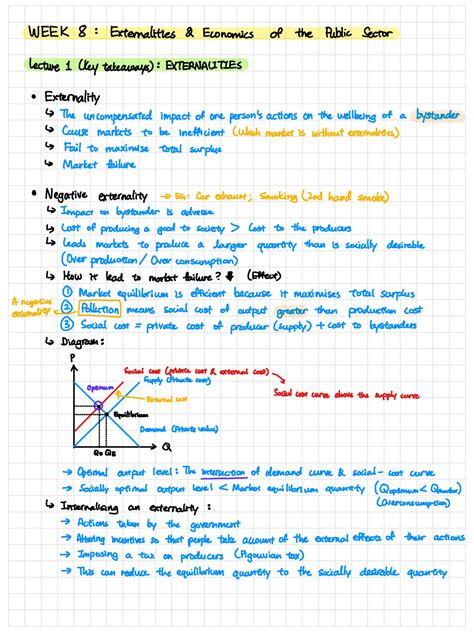 WEEK 8 : Externalities & Economics of the Public Sector
Lecture 1 (Key takeaways) : EXTERNALITIES
• Externality
↳ The uncompensated impact of one person's actions on the wellbeing of a bystander
↳ Cause markets to be inefficient (Which market is without externalities)
↳ Fail to maximise total surplus
↳ Market failure
• Negative externality → EG: Car exhaust; Smoking (2nd hand smoke)
↳ Impact on bystander is adverse
↳ Cost of producing a good to society > Cost to the producers
↳ Leads markets to produce a larger quantity than is socially desirable
(Over production / Over consumption)
↳ How it lead to market failure? ⬇ (Effect)
① Market equilibrium is efficient because it maximises total surplus
A negative externality
② Pollution means social cost of output greater than production cost
③ Social cost = private cost of producer (supply) + cost to bystanders
↳ Diagram:
P
Social cost (private cost & external cost)
Supply (Private cost)
Optimum
External cost
Social cost curve above the supply curve
Equilibrium
Demand (Private value)
Qo QE
Q
→ Optimal output level : The intersection of demand curve & social-cost curve
→ Socially optimal output level < Market equilibrium quantity (Qoptimum < Qmarket)
(Overconsumption)
↳ Internalising an externality :
→ Actions taken by the government
→ Altering incentives so that people take account of the external effects of their actions
→ Imposing a tax on producers (Pigouvian tax)
→ This can reduce the equilibrium quantity to the socially desirable quantity